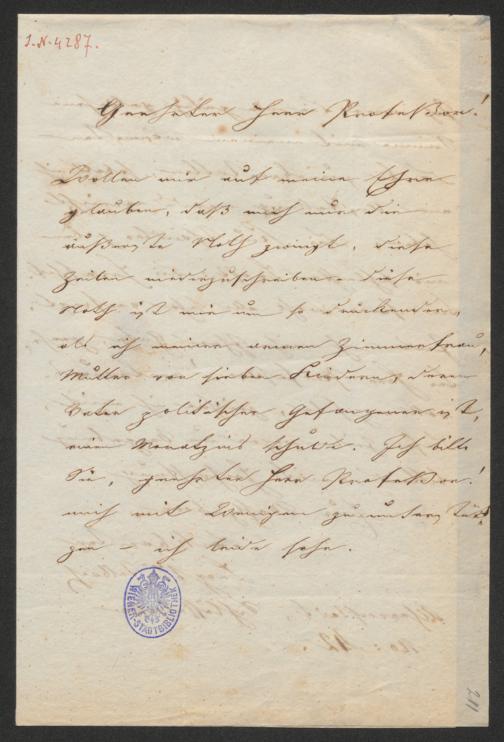 I.N. 4287.
Geehrter Herr Professor!
Wollen mir auf meine Ehre
glauben, daß mich nur die
äußerste Noth zwingt, diese
Zeilen niederzuschreiben. Diese
Noth ist mir um so drückender,
als ich meiner armen Zimmerfrau,
Mutter von sieben Kindern, deren
Vater politischer Gefangener ist,
einen Monatzins schulde. Ich bitte
Sie, geehrter Herr Professor!
mich mit Wenigen zu unterstüt
zen – ich leide sehr.
WIENER-STADTBIBLIOTHEK
211